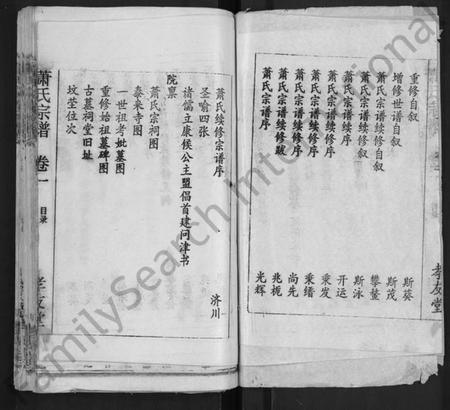 重修自叙 斯葵
增修世谱自叙 斯茂
萧氏宗谱续修自叙 攀鳌
萧氏宗谱续修叙 斯泳
萧氏宗谱续修序 开运
萧氏宗谱续修序 秉发
萧氏宗谱续修序 秉缙
萧氏宗谱续修序 尚先
萧氏宗谱续修跋 兆槐
萧氏宗谱序 光辉
孝友堂
萧氏续修宗谱序 济川
圣喻四张
诸儒立康候公主盟倡首建问津书
院禀
萧氏宗祠图
泰来寺图
一世祖考妣墓图
重修始祖墓碑图
古墓祠堂旧址
坟茔位次
萧氏宗谱 卷一 目录 孝友堂
FamilySearch International